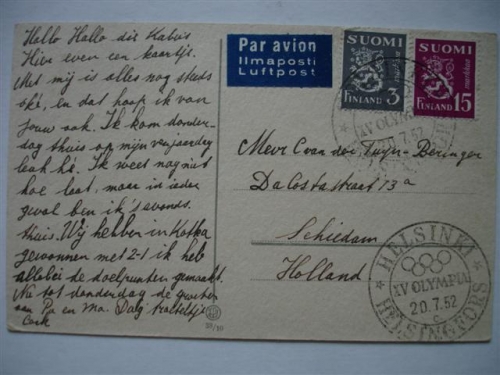 Hello Hallo die Kabuis
Hier even een kaartje.
Met mij is alles nog steeds
oké, en dat hoop ik van
jouw ook. Ik kom donder-
dag thuis op mijn verjaardag
leuk hé. Ik weet nog niet
hoe laat, maar in ieder
geval ben ik 's avonds
thuis. Wij hebben in Kotka
gewonnen met 2-1 ik heb
allebei de doelpunten gemaakt.
Nu tot donderdag de groeten
aan Pa en Ma. Dag
Par avion
Ilmaposti
Luftpost
SUOMI
3
markkaa
FINLAND
SUOMI
markkaa
FINLAND 15
XV OLYMPIA
7.52
Mevr C van der Tuyn-Beringer
Da Costastraat 13a
Schiedam
Holland
HELSINKI
XV OLYMPIA
20.7.52
C
HELSINGFORS